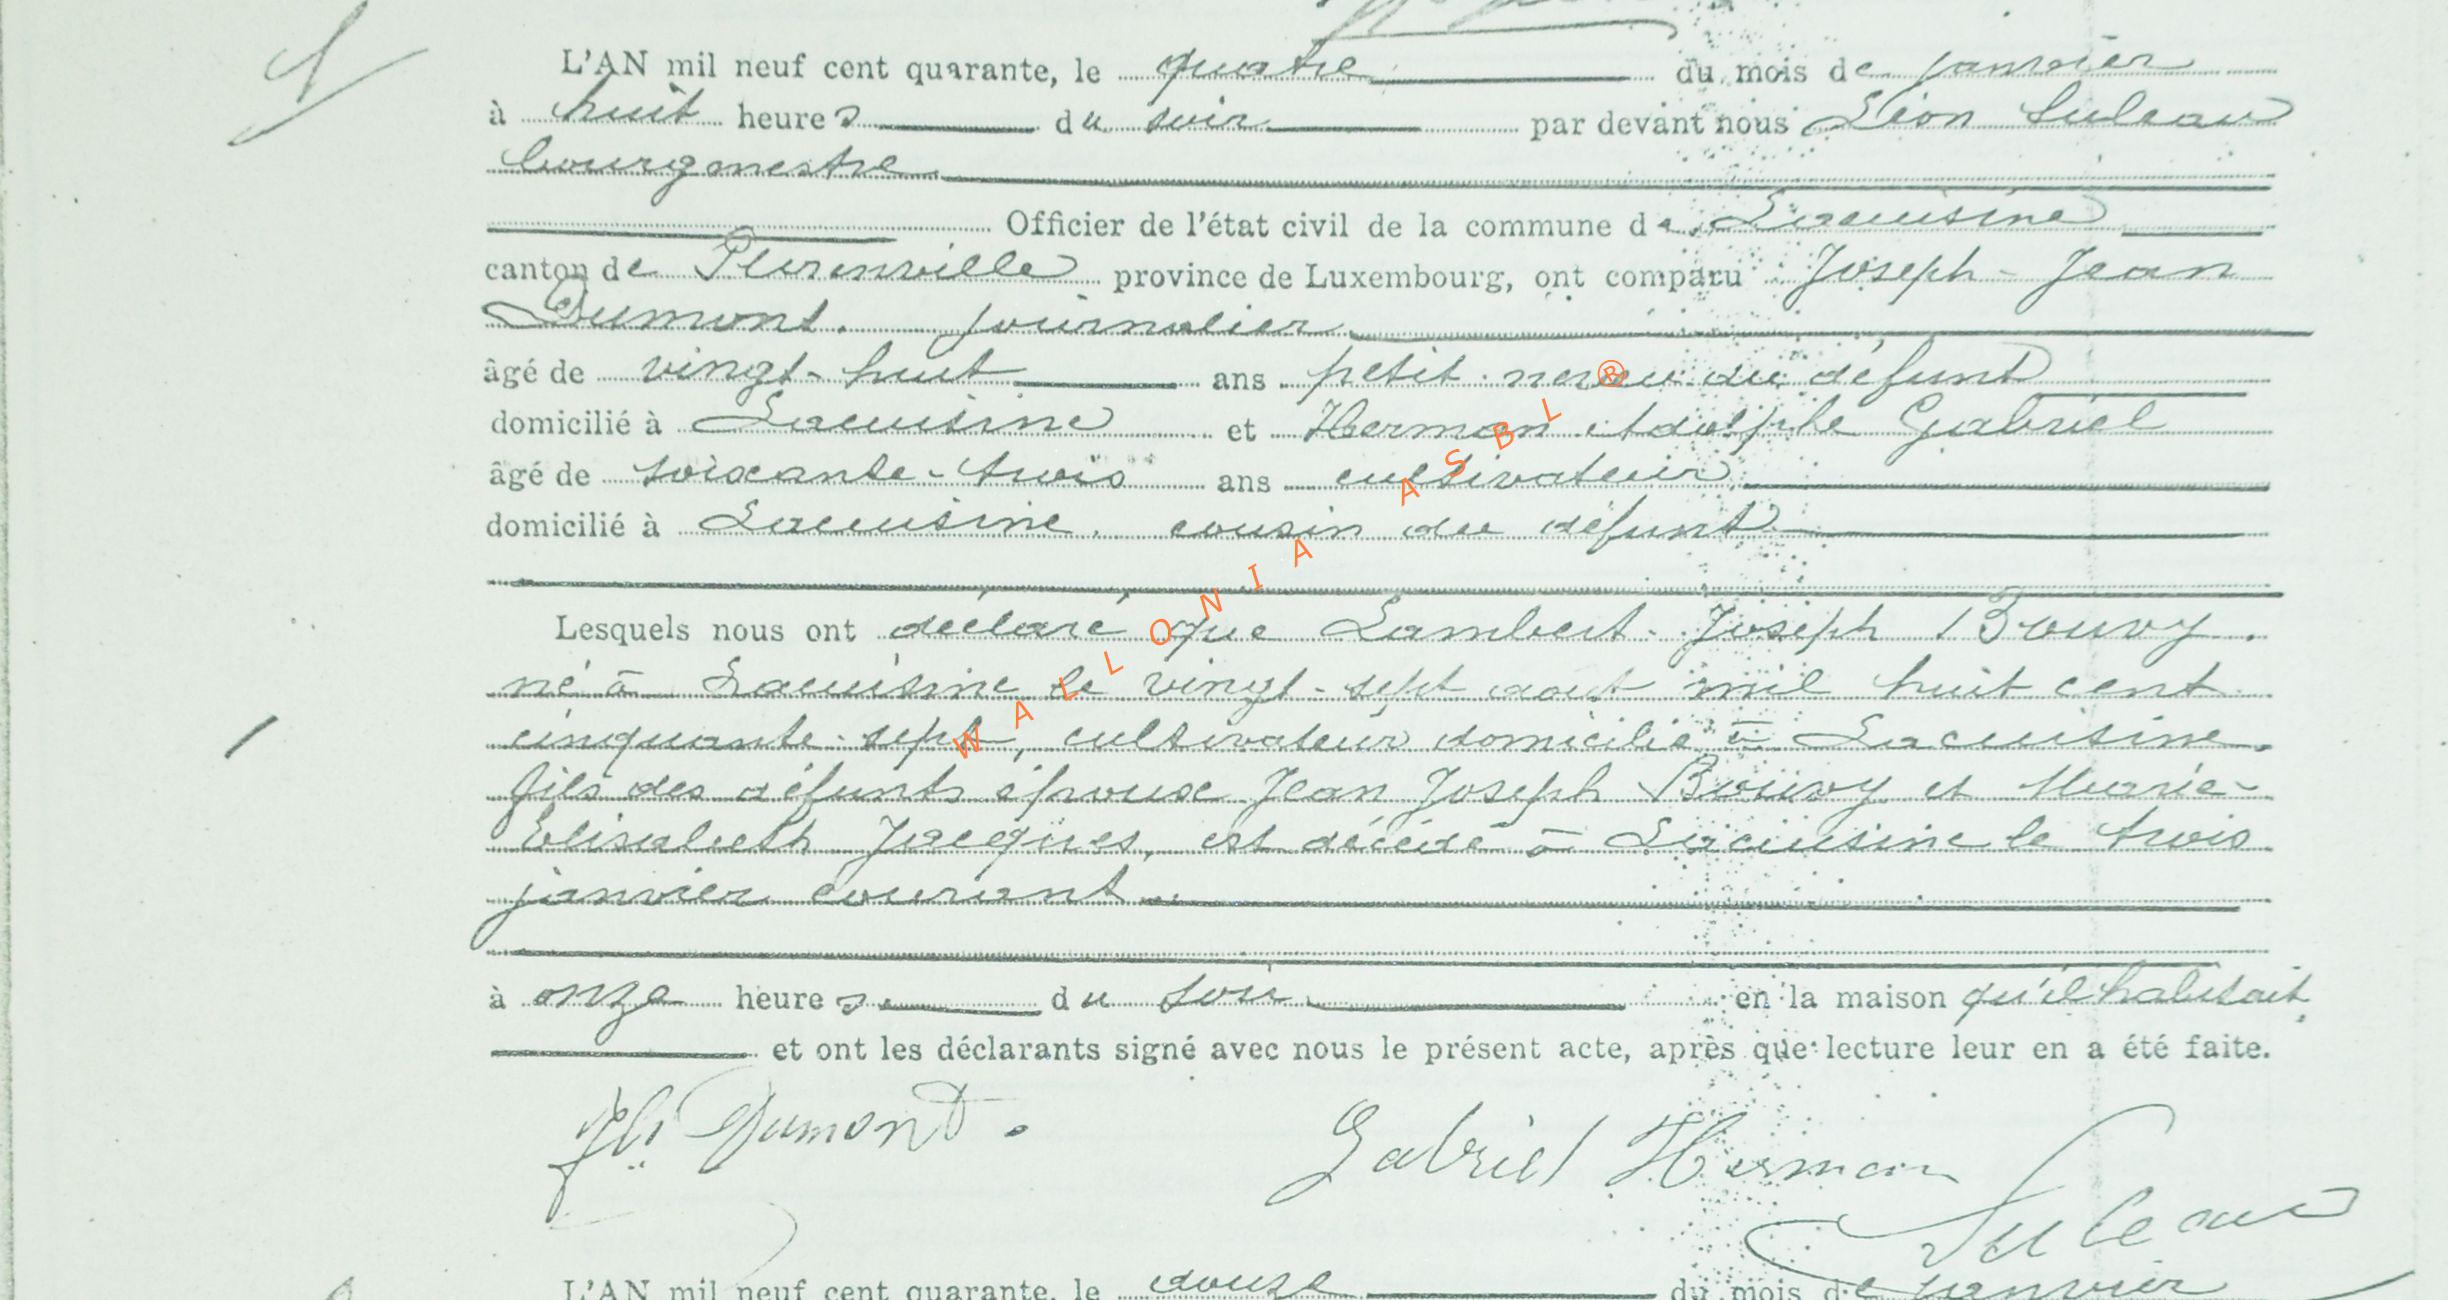 L'AN mil neuf cent quarante, le quatre du mois de janvier
à huit heures du soir par devant nous Léon Suleau
bourgmestre
Officier de l'état civil de la commune de Lacuisine
canton de Florenville province de Luxembourg, ont comparu Joseph-Jean
Dumont. journalier
âgé de vingt-huit ans petit neveu du défunt
domicilié à Lacuisine et Herman Adolphe Gabriel
âgé de soixante-trois ans cultivateur
domicilié à Lacuisine. cousin du défunt
Lesquels nous ont déclaré que Lambert-Joseph Bouvy.
né à Lacuisine le vingt-sept août mil huit cent
cinquante-sept, cultivateur domicilié à Lacuisine.
fils des défunts époux Jean Joseph Bouvy et Marie-
Elisabeth Jacques, est décédé à Lacuisine le trois
janvier courant.
à onze heures du soir en la maison qu'il habitait,
et ont les déclarants signé avec nous le présent acte, après que lecture leur en a été faite.
Dumont. Gabriel Herman
Suleau
L'AN mil neuf cent quarante, le douze du mois de janvier
WALLONIA ASBL ®